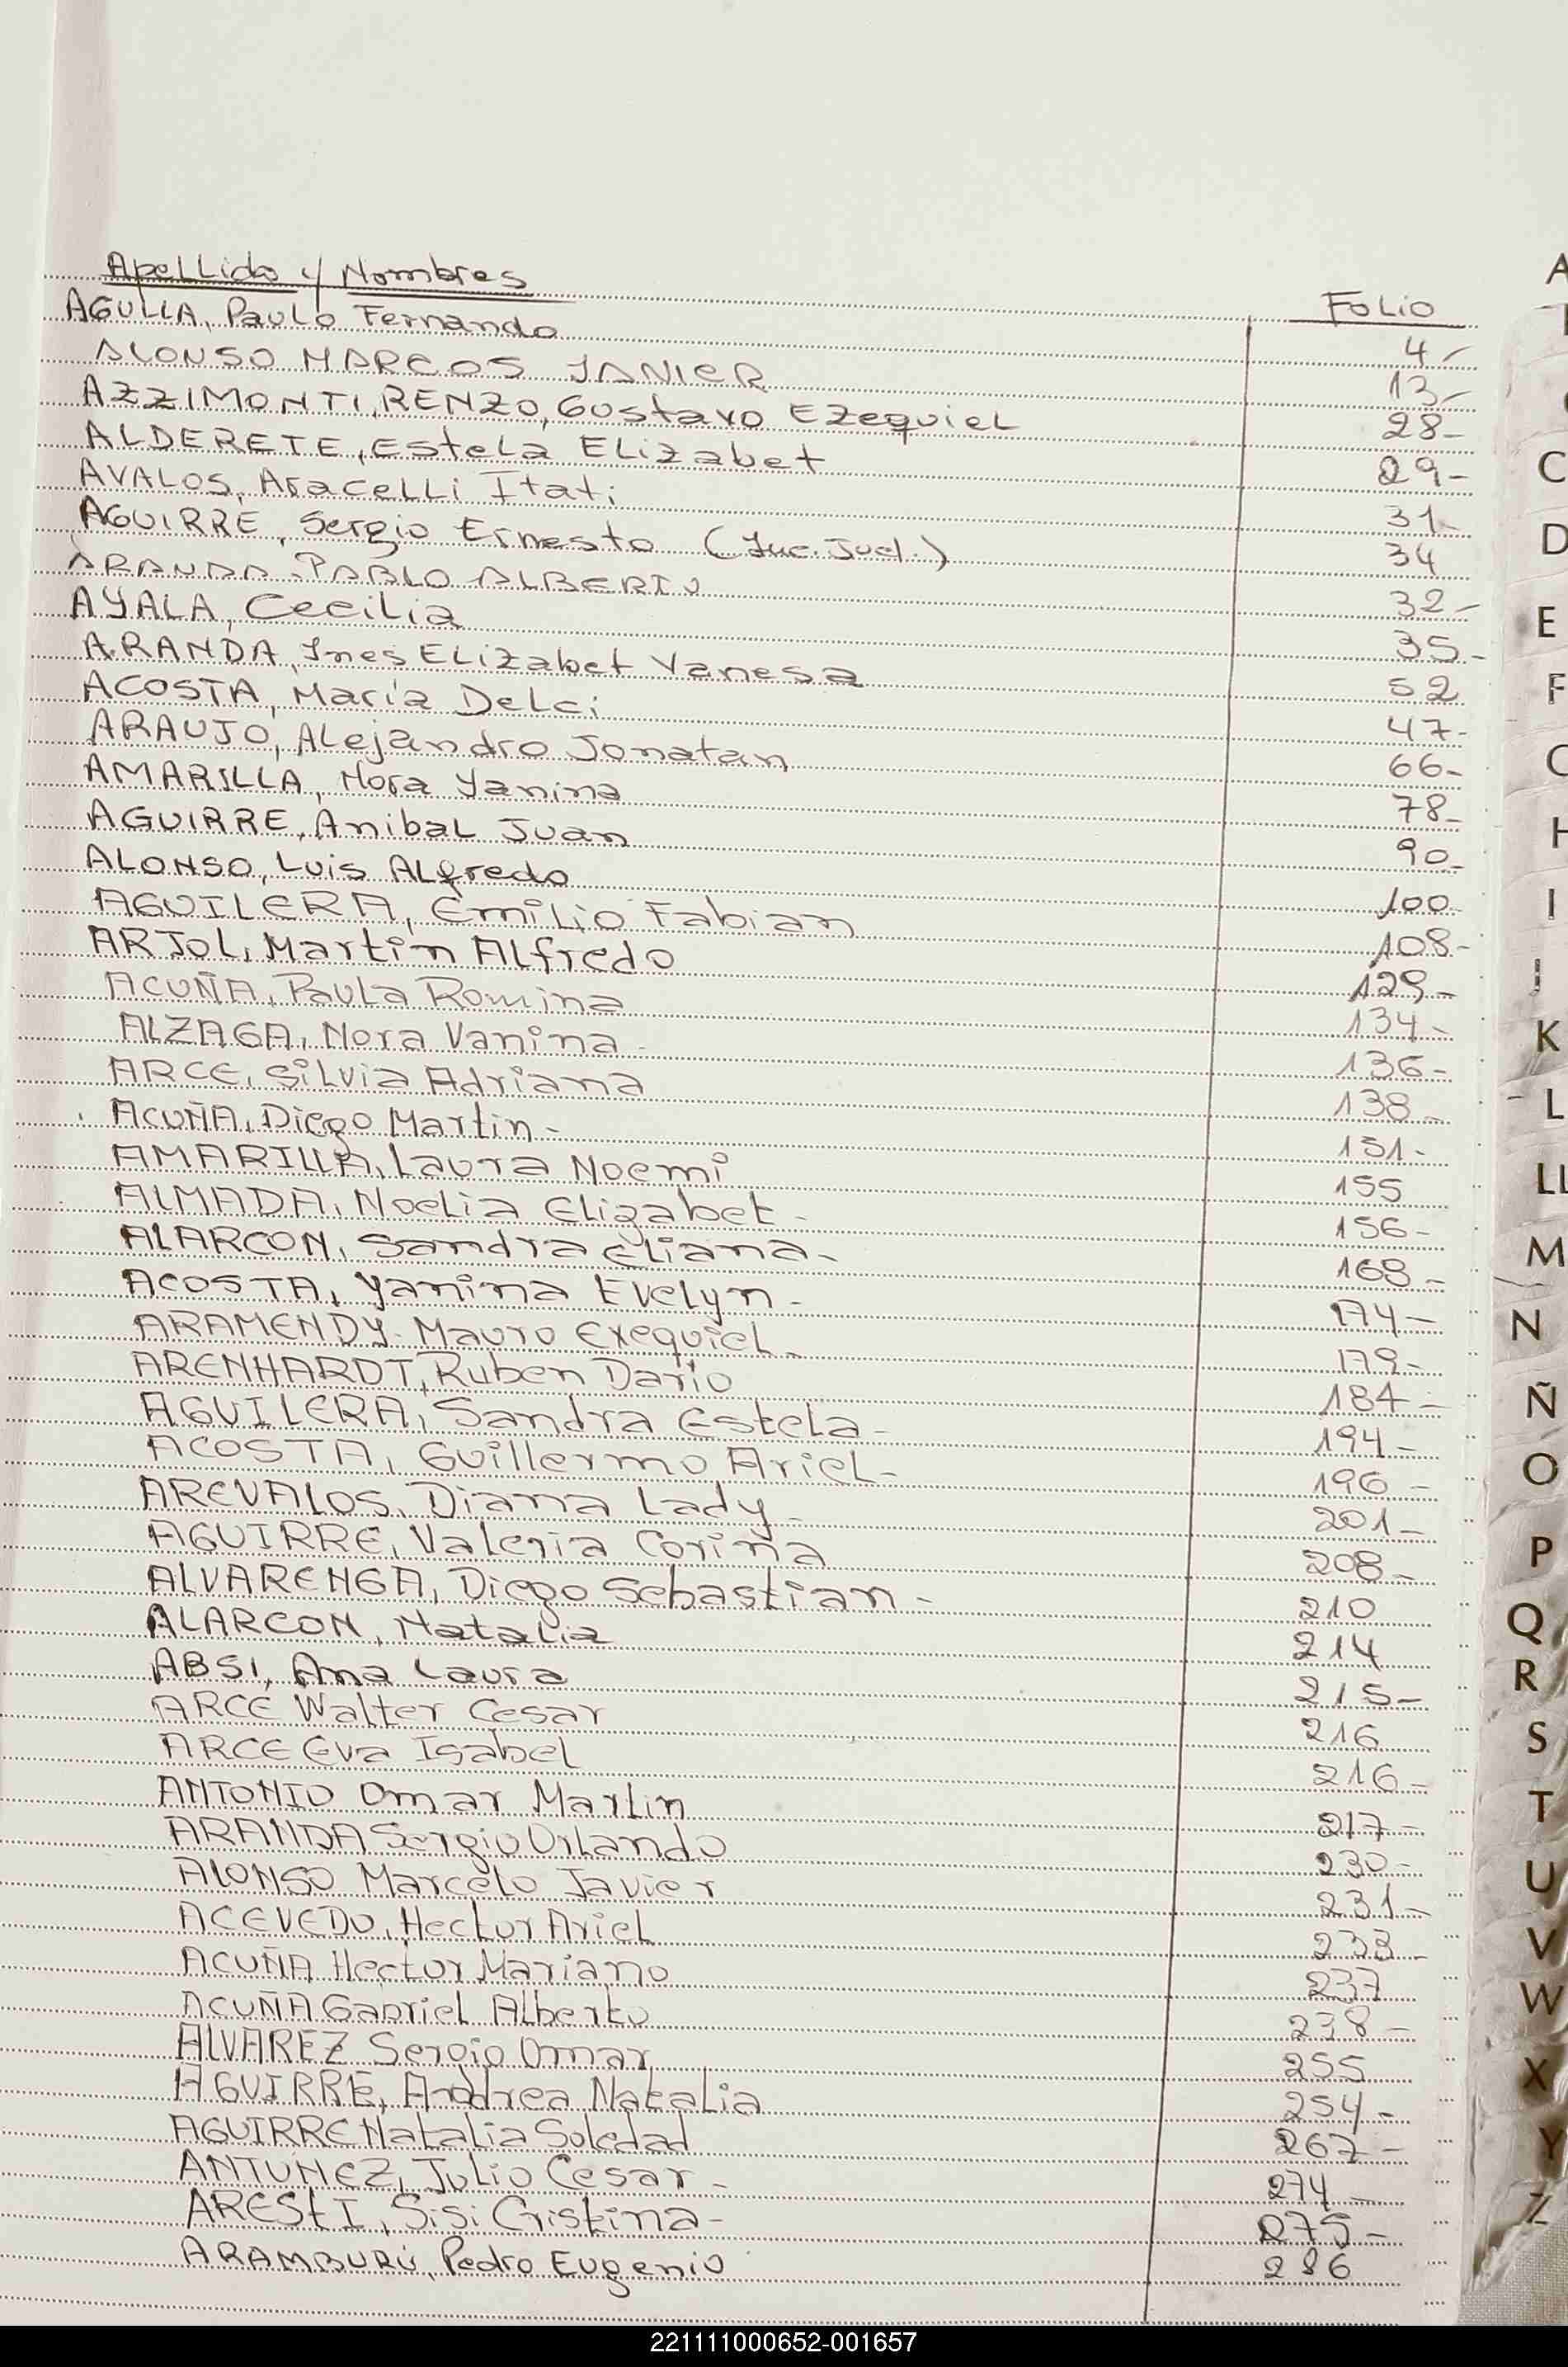 Apellido y Nombres Folio
AGULLA, Paulo Fernando 4-
ALONSO MARCOS JANIER 13-
AZZIMONTI, RENZO, Gustavo Ezequiel 28-
ALDERETE, Estela Elizabet 29-
AVALOS, Aracelli Itati 31-
AGUIRRE, Sergio Ernesto (Juc. Jud.) 34
ARANDA PABLO ALBERTO 32-
AYALA, Cecilia 35-
ARANDA, Ines Elizabet Vanesa 52
ACOSTA, María Delci 47-
ARAUJO, Alejandro Jonatan 66-
AMARILLA, Nora Yanina 78-
AGUIRRE, Anibal Juan 90-
ALONSO, Luis Alfredo 100
AGUILERA, Emilio Fabian 108-
ARJOL, Martin Alfredo 129-
ACUÑA, Paula Romina 134-
ALZAGA, Nora Vanina - 136-
ARCE, Silvia Adriana 138-
ACUÑA, Diego Martin - 151-
AMARILLA, Laura Noemi 155
ALMADA, Noelia Elizabet - 156-
ALARCON, Sandra Eliana - 168-
ACOSTA, Yanina Evelyn - 174-
ARAMENDY Mauro Exequiel - 179-
ARENHARDT, Ruben Dario 184-
AGUILERA, Sandra Estela - 194-
ACOSTA, Guillermo Ariel - 196-
AREVALOS, Diana Lady - 201-
AGUIRRE, Valeria Corina 208-
ALVARENGA, Diego Sebastian - 210
ALARCON, Natalia 214
ABSI, Ana Laura 215-
ARCE Walter Cesar 216
ARCE Eva Isabel 216-
ANTONIO Omar Martin 217-
ARANDA Sergio Orlando 230-
ALONSO Marcelo Javier 231-
ACEVEDO, Hector Ariel 233-
ACUÑA Hector Mariano 237
ACUÑA Gabriel Alberto 238-
ALVAREZ Sergio Omar 255
AGUIRRE, Andrea Natalia 254-
AGUIRRE Natalia Soledad 267-
ANTUNEZ, Julio Cesar - 274-
ARESTI, Sisi Cristina - 275-
ARAMBURÚ, Pedro Eugenio 286
A
C
D
E
F
H
I
J
K
L
LL
M
N
Ñ
O
P
Q
R
S
T
U
V
W
X
Y
Z
221111000652-001657